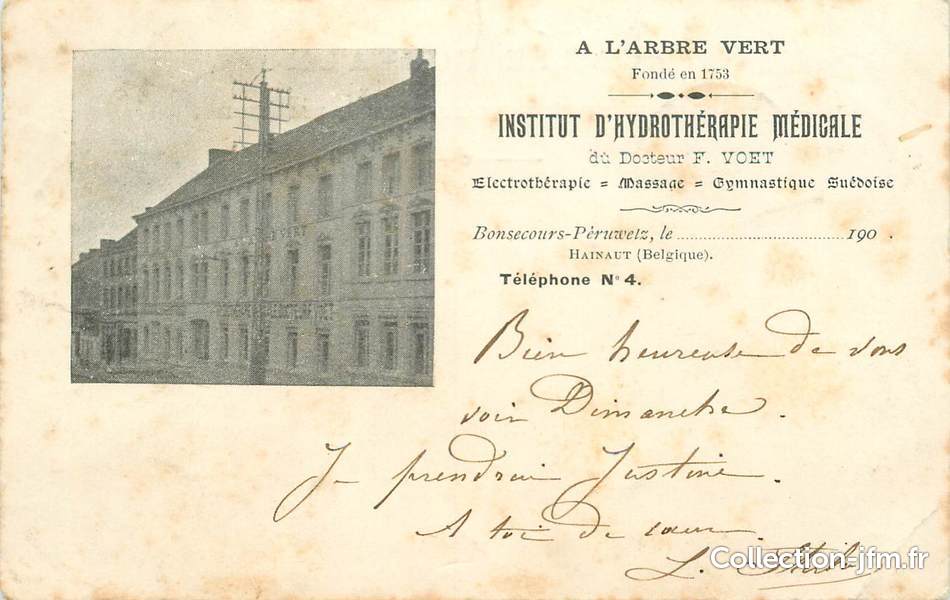 A L'ARBRE VERT
Fondé en 1753
INSTITUT D'HYDROTHÉRAPIE MÉDICALE
du Docteur F. VOET
Electrothérapie = Massage = Gymnastique Suédoise
Bonsecours-Péruwelz, le 190 .
HAINAUT (Belgique).
Téléphone N° 4.
VERT
VOET
Bien heureuse de vous
voir Dimanche.
Je prendrai Justine.
A toi de cœur
L.
Collection-jfm.fr